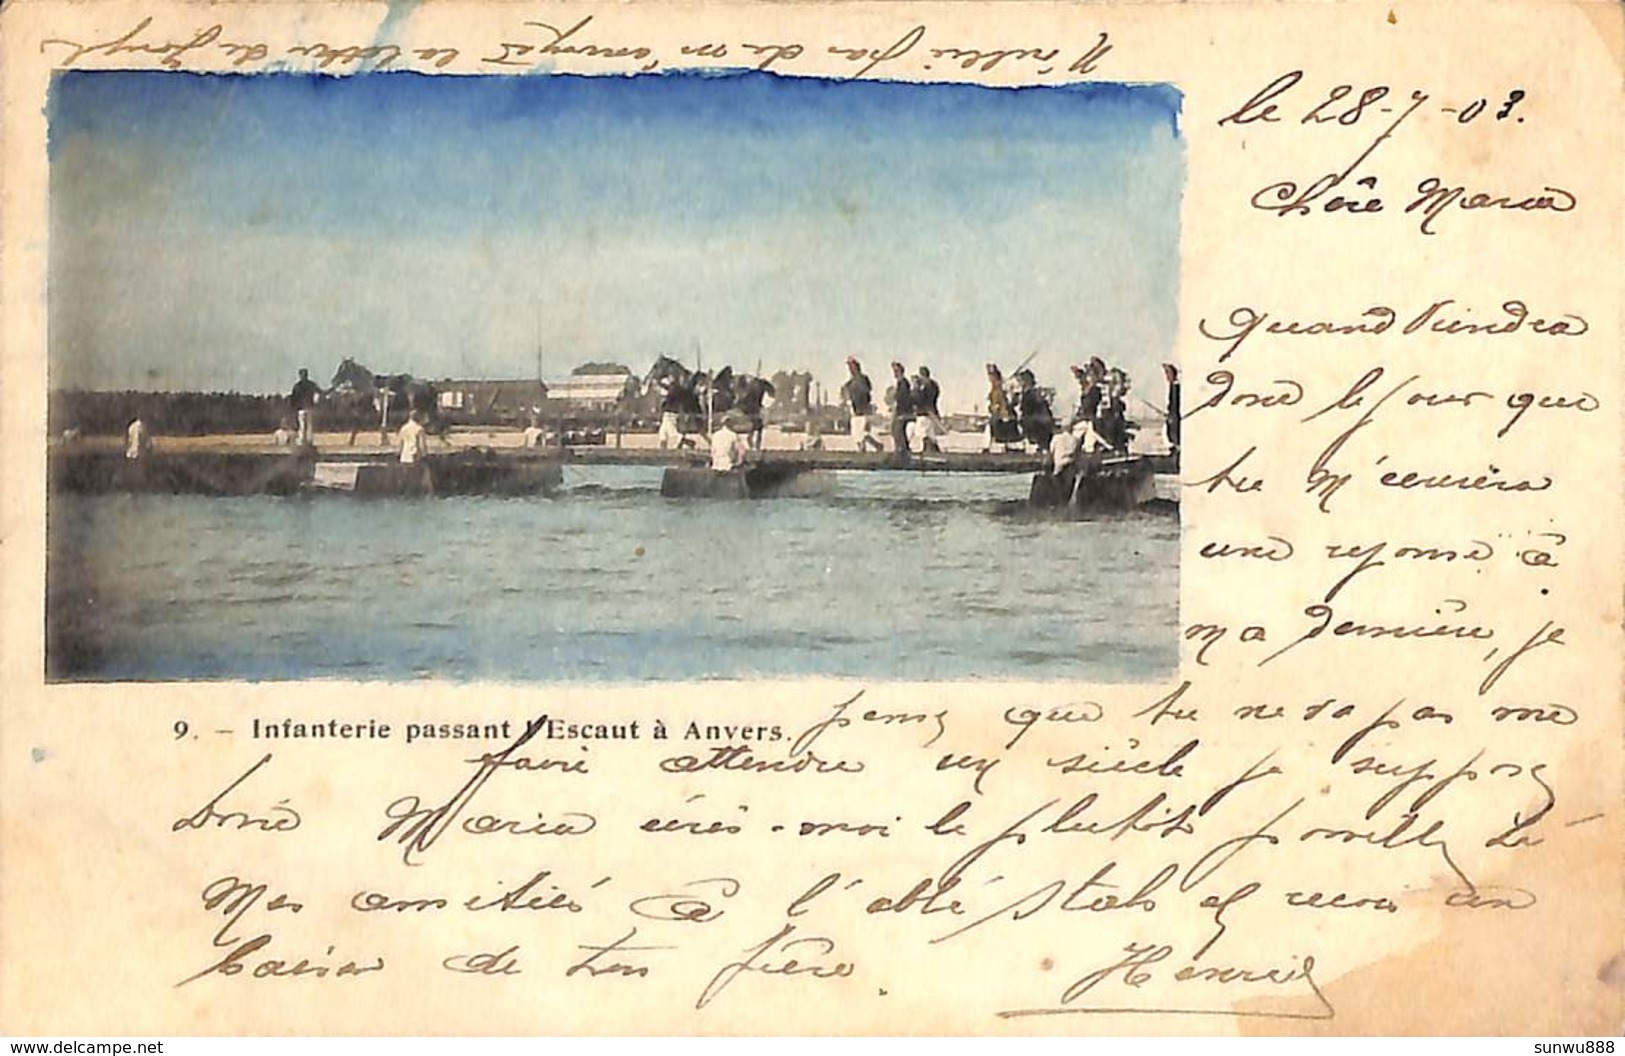 N'oublie pas de m'envoyer la lettre de Joseph
le 28-7-03.
Chère Maria
Quand viendra
donc le jour que
tu m'écriera
une reponse à
ma dernière, je
pense que tu ne va pas me
9. – Infanterie passant l'Escaut à Anvers.
faire attendre un siècle je suppose
Donc Maria écris-moi le plutôt possible
Mes amitiés à l'abbé et reçois un
baiser de ton frère.
Henri
www.delcampe.net
sunwu888